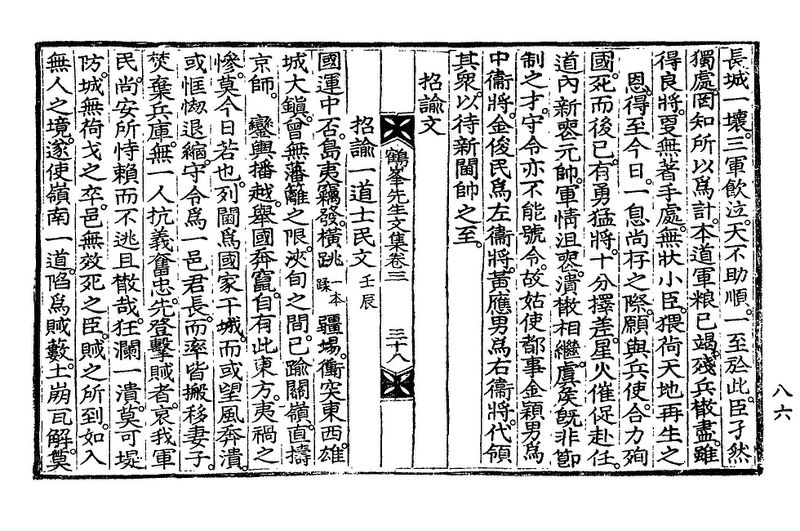 長城一壞。三軍飮泣。天不助順。一至於此。臣孑然
獨處。罔知所以爲計。本道軍粮已竭。殘兵散盡。雖
得良將。更無著手處。無狀小臣。猥荷天地再生之
恩。得至今日。一息尙存之際。願與兵使。合力殉
國。死而後已。有勇猛將。十分擇差。星火催促赴任。
道內新喪元帥。軍情沮喪。潰散相繼。虞侯旣非節
制之才。守令亦不能號令。故姑使都事金穎男爲
中衛將。金俊民爲左衛將。黃應男爲右衛將。代領
其衆。以待新閫帥之至。
招諭文
鶴峯先生文集卷三
三十八
招諭一道士民文 壬辰
國運中否。島夷竊發。橫跳 一本踩 疆場。衝突東西。雄
城大鎭。曾無藩籬之限。浹旬之間。已踰關嶺。直擣
京師。鑾輿播越。擧國奔竄。自有此東方。夷禍之
慘。莫今日若也。列閫爲國家干城。而或望風奔潰。
或恇怯退縮。守令爲一邑君長。而率皆搬移妻子。
焚棄兵庫。無一人抗義奮忠。先登擊賊者。哀我軍
民。尙安所恃賴而不逃且散哉。狂瀾一潰。莫可堤
防。城無荷戈之卒。邑無效死之臣。賊之所到。如入
無人之境。遂使嶺南一道。陷爲賊藪。土崩瓦解。莫
八六